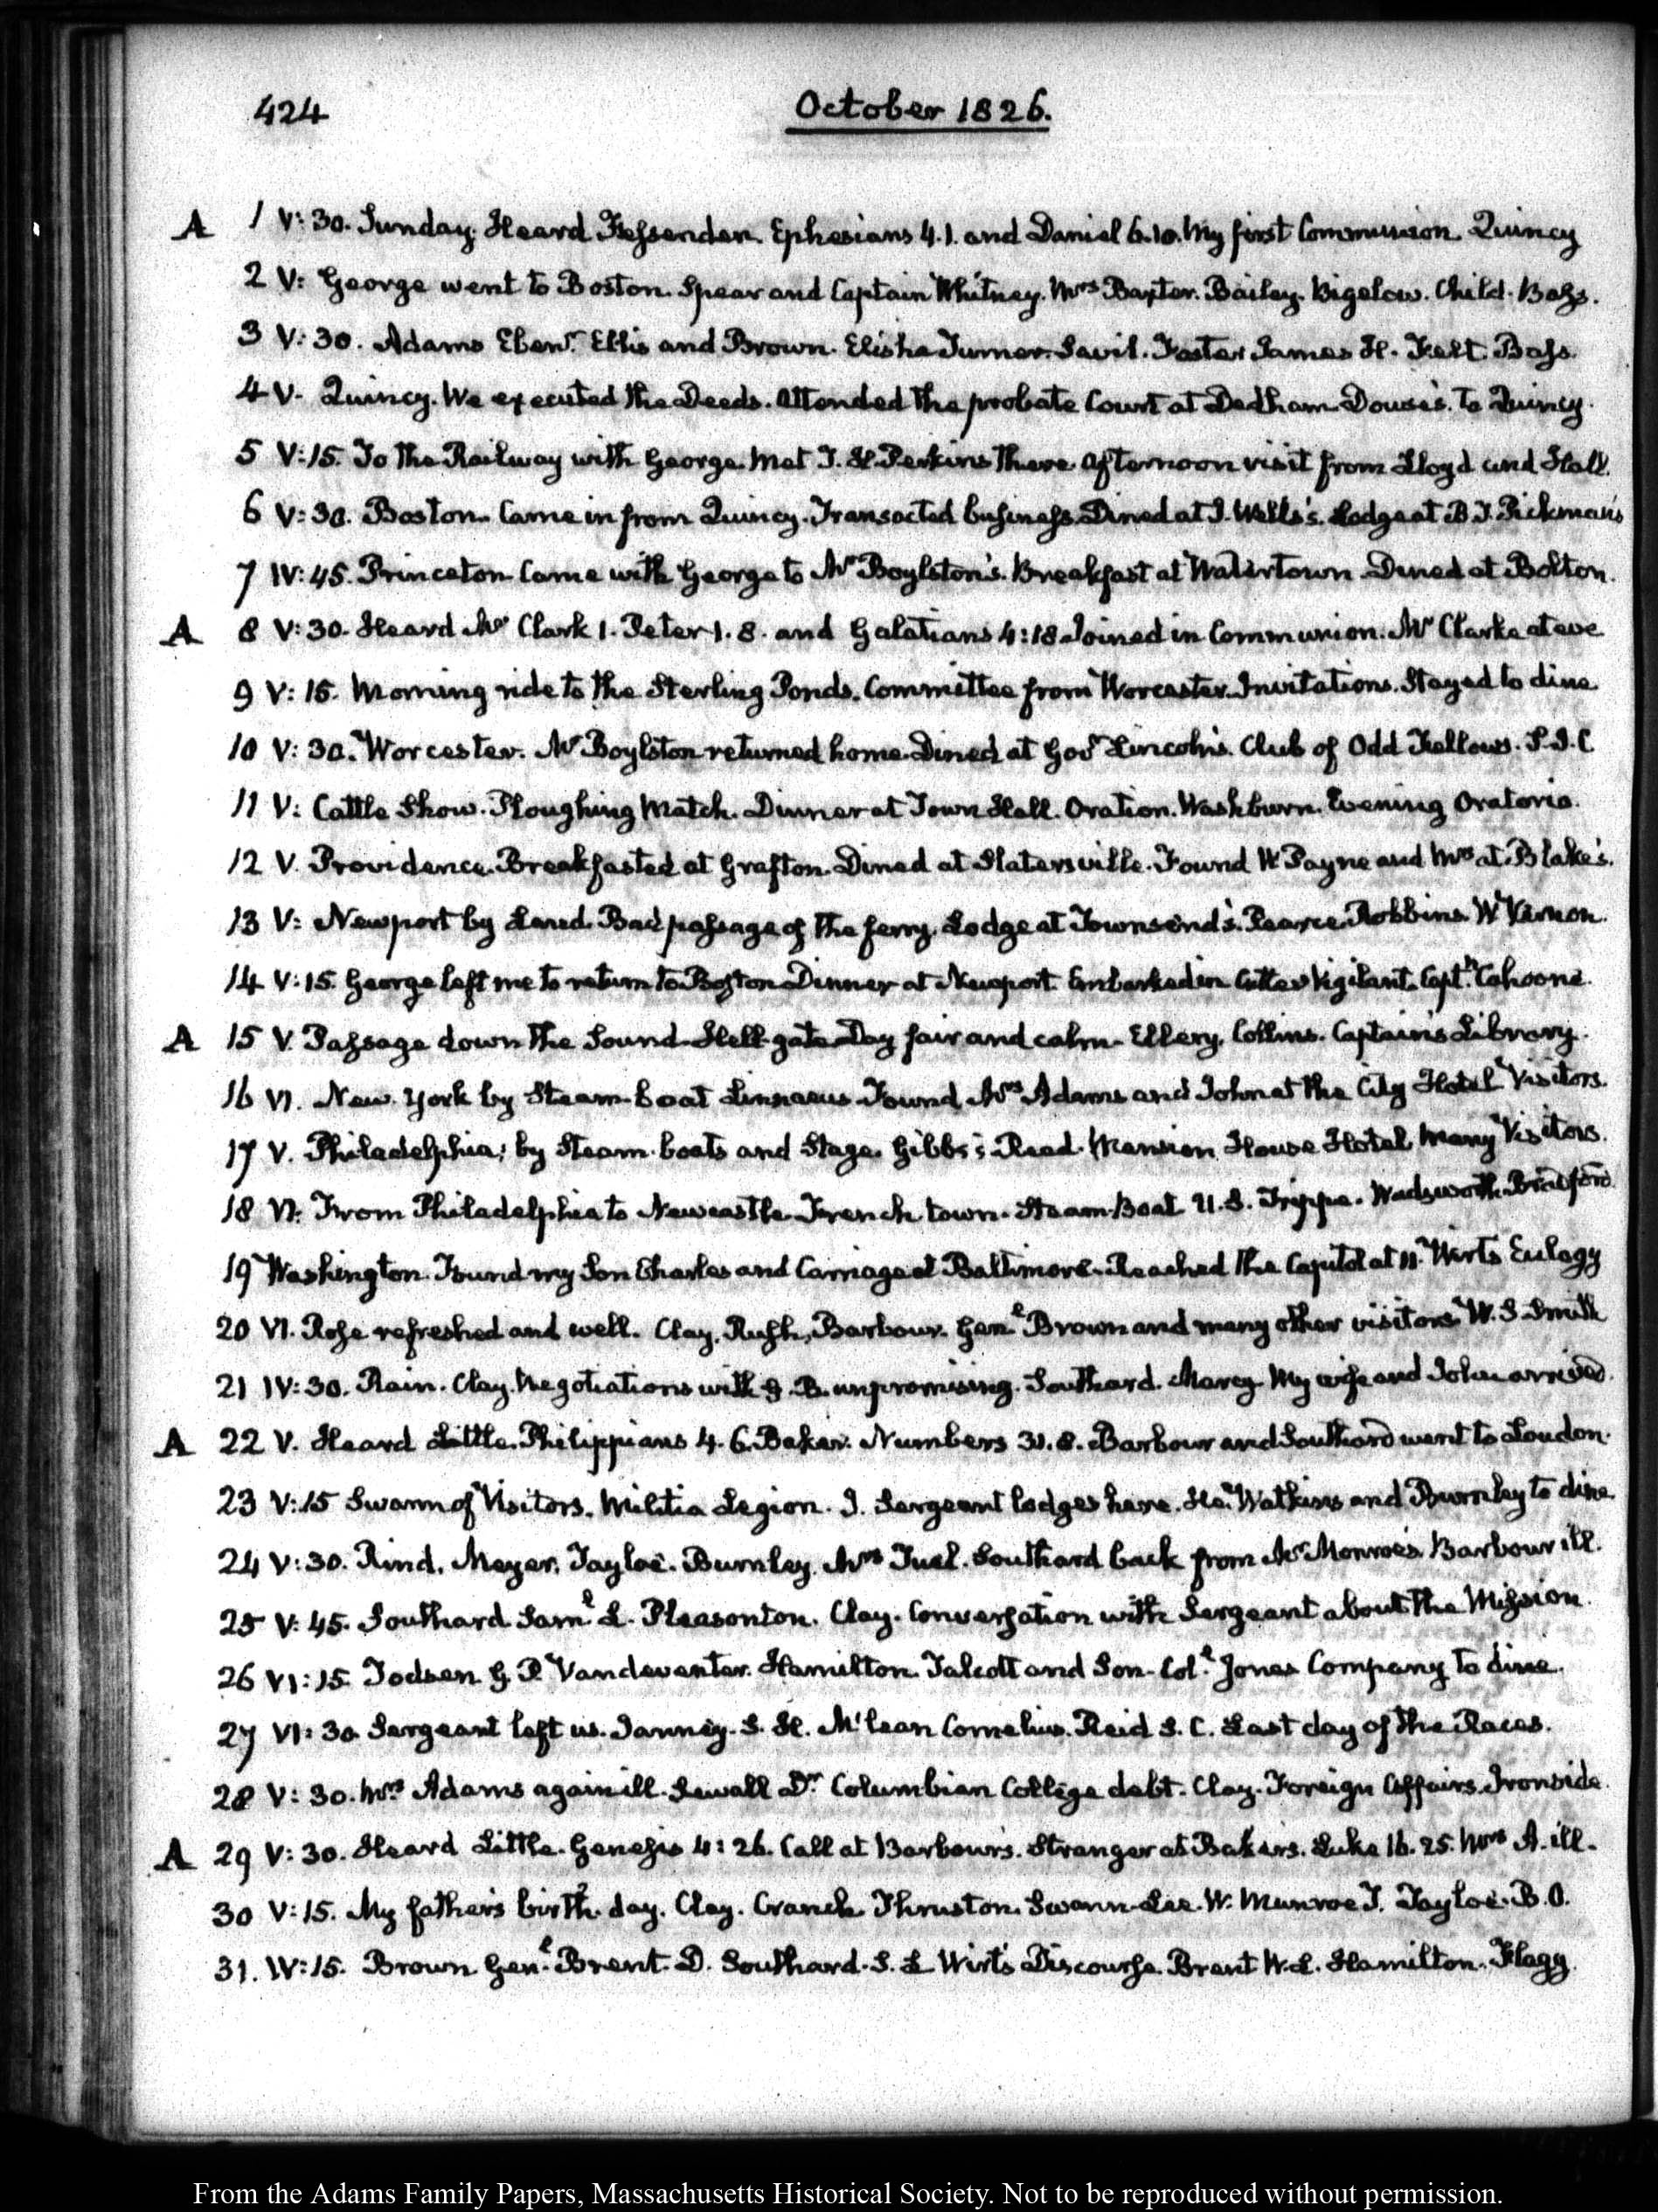 424
October 1826.
A 1 V:30. Sunday. Heard Fessenden. Ephesians 4.1. and Daniel 6.10. My first Communion. Quincy
2 V: George went to Boston. Spear and Captain Whitney. Mrs Baxter. Bailey. Bigelow. Child. Bass.
3 V:30. Adams Ebenr. Ellis and Brown. Elisha Turner. Savil. Foster James H. Felt. Bass.
4 V. Quincy. We executed the Deeds. Attended the probate Court at Dedham. Dowse's. To Quincy.
5 V:15. To the Railway with George. Met T. H. Perkins there. Afternoon visit from Lloyd and Hall.
6 V:30. Boston. Came in from Quincy. Transacted business. Dined at I. Wells's. Lodge at B. T. Pickman's
7 IV:45. Princeton. Came with George to Mr Boylston's. Breakfast at Watertown. Dined at Bolton.
A 8 V:30. Heard Mr Clark 1. Peter 1. 8. and Galatians 4:18 Joined in Communion. Mr Clarke at eve
9 V:15. Morning ride to the Sterling Ponds. Committee from Worcester. Invitations. Stayed to dine.
10 V:30. Worcester. Mr Boylston returned home. Dined at Govr Lincoln's. Club of Odd Fellows.
11 V: Cattle Show. Ploughing Match. Dinner at Town Hall. Oration. Washburn. Evening Oratorio.
12 V. Providence. Breakfasted at Grafton. Dined at Slatersville. Found W. Payne and Mrs at Blake's.
13 V: Newport by Land. Bad passage of the ferry. Lodge at Townsend's. Pearce. Robbins. W. Vernon.
14 V:15. George left me to return to Boston. Dinner at Newport. Embarked in Cutter Vigilant. Captn Cahoone.
A 15 V. Passage down the Sound. Hell-gate. Day fair and calm. Ellery. Collins. Captain's Library.
16 VI. New-York by Steam-boat Linnaeus. Found Mrs Adams and John at the City Hotel. Visitors.
17 V. Philadelphia; by Steam-boats and Stage. Gibbs; Read. Mansion House Hotel. Many Visitors.
18 VI. From Philadelphia to Newcastle. French town. Steam-Boat U.S. Trippe. Wadsworth. Bradford.
19 Washington. Found my Son Charles and Carriage at Baltimore. Reached the Capitol at 11. Wirt's Eulogy
20 VI. Rose refreshed and well. Clay. Rush, Barbour. Genl Brown and many other visitors. W. S. Smith
21 IV:30. Rain. Clay. Negotiations with G. B. unpromising. Southard. Marcy. My wife and John arrived.
A 22 V. Heard Little. Philippians 4. 6. Baker. Numbers 31. 8. Barbour and Southard went to Loudon.
23 V:15 Swarm of Visitors. Militia Legion. J. Sergeant lodges here. He. Watkins and Burnley to dine.
24 V:30. Rind. Meyer. Tayloe. Burnley. Mrs Tuel. Southard back from Mr Monroe's. Barbour ill.
25 V:45. Southard Saml L. Pleasonton. Clay. Conversation with Sergeant about the Mission.
26 VI:15. Todsen G. P. Vandeventer. Hamilton. Talcott and Son. Coll. Jones Company to dine.
27 VI:30. Sergeant left us. Janney. S. H. McLean Cornelius. Reid S. C. Last day of the Races.
28 V:30. Mrs Adams again ill. Sewall Dr. Columbian College debt. Clay. Foreign Affairs. Ironside.
A 29 V:30. Heard Little. Genesis 4:26. Call at Barbour's. Stranger at Baker's. Luke 16. 25. Mrs A. ill.
30 V:15. My father's birth-day. Clay. Cranch. Thruston. Swann. Lee. W. Munroe T. Tayloe. B. O.
31. IV:15. Brown Genl. Brent. D. Southard. S. L Wirt's Discourse. Brent W. L. Hamilton. Flagg.
From the Adams Family Papers, Massachusetts Historical Society. Not to be reproduced without permission.